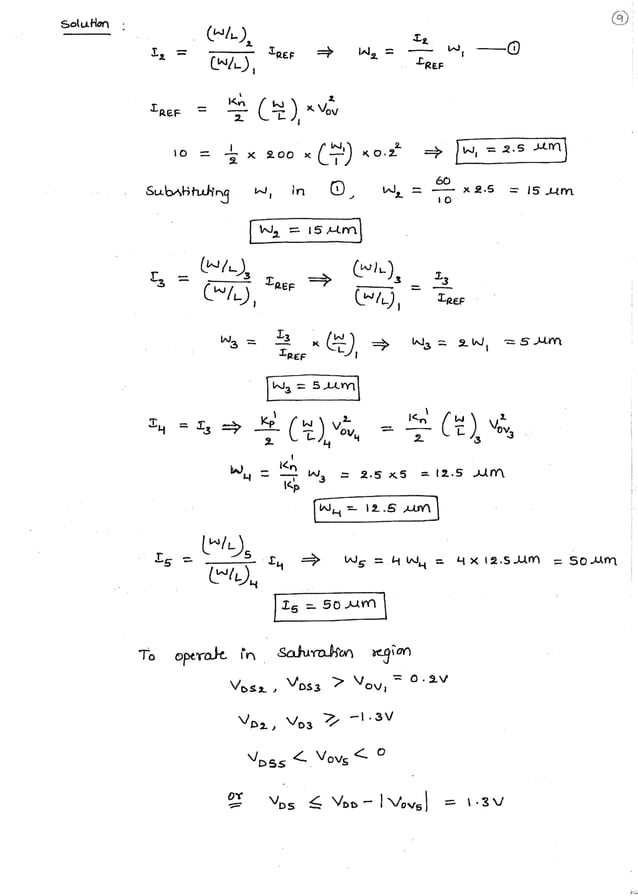 9
Solution :
I₂ = (W/L)₂ / (W/L)₁ I_REF ⇒ W₂ = I₂ / I_REF W₁ —①
I_REF = Kn' / 2 (W/L)₁ × V²_OV
10 = 1/2 × 200 × (W₁/1) × 0.2² ⇒ W₁ = 2.5 μm
Substituting W₁ in ①, W₂ = 60/10 × 2.5 = 15 μm
W₂ = 15 μm
I₃ = (W/L)₃ / (W/L)₁ I_REF ⇒ (W/L)₃ / (W/L)₁ = I₃ / I_REF
W₃ = I₃ / I_REF × (W/L)₁ ⇒ W₃ = 2W₁ = 5 μm
W₃ = 5 μm
I₄ = I₃ ⇒ Kp' / 2 (W/L)₄ V²_OV₄ = Kn' / 2 (W/L)₃ V²_OV₃
W₄ = Kn' / Kp' W₃ = 2.5 × 5 = 12.5 μm
W₄ = 12.5 μm
I₅ = (W/L)₅ / (W/L)₄ I₄ ⇒ W₅ = 4W₄ = 4 × 12.5 μm = 50 μm
I₅ = 50 μm
To operate in saturation region
V_DS2, V_DS3 > V_OV₁ = 0.2V
V_D2, V_D3 ⩾ -1.3V
V_DS5 < V_OV5 < 0
or V_D5 ≤ V_DD - |V_OV5| = 1.3V